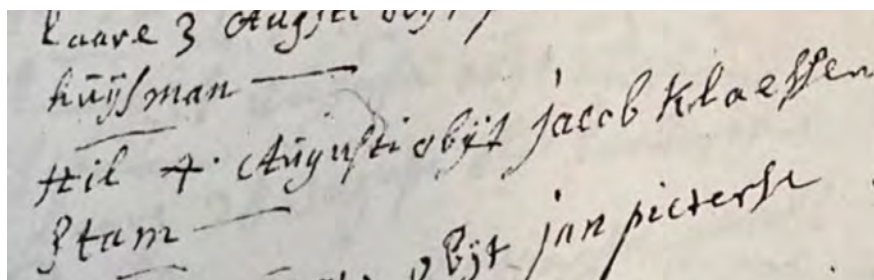 laare 3 Augsti obijt
huijsman
Hil 4. Augusti obijt jacob Klaessen
Stam
obijt jan pieterse